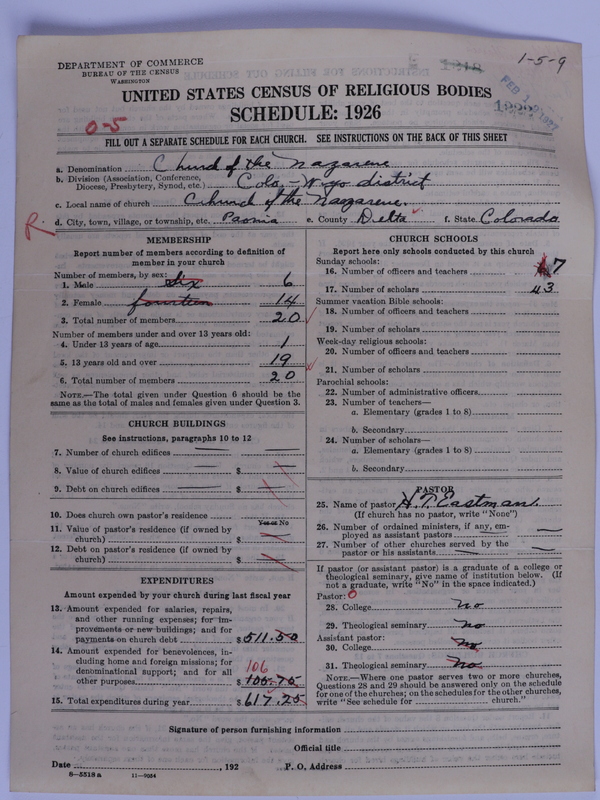 1-5-9
DEPARTMENT OF COMMERCE
BUREAU OF THE CENSUS
WASHINGTON
UNITED STATES CENSUS OF RELIGIOUS BODIES
SCHEDULE: 1926
0-5
FILL OUT A SEPARATE SCHEDULE FOR EACH CHURCH. SEE INSTRUCTIONS ON THE BACK OF THIS SHEET
a. Denomination Church of the Nazarene
b. Division (Association, Conference, Diocese, Presbytery, Synod, etc.) Colo-Wyo district
c. Local name of church Church of the Nazarene.
R. d. City, town, village, or township, etc. Paonia e. County Delta f. State Colorado
MEMBERSHIP
Report number of members according to definition of
member in your church
Number of members, by sex:
1. Male six 6
2. Female fourteen 14
3. Total number of members 20
Number of members under and over 13 years old:
4. Under 13 years of age 1
5. 13 years old and over 19
6. Total number of members 20
NOTE.—The total given under Question 6 should be the
same as the total of males and females given under Question 3.
CHURCH BUILDINGS
See instructions, paragraphs 10 to 12
7. Number of church edifices
8. Value of church edifices $
9. Debt on church edifices $
10. Does church own pastor's residence
Yes or No
11. Value of pastor's residence (if owned by
church) $
12. Debt on pastor's residence (if owned by
church) $
EXPENDITURES
Amount expended by your church during last fiscal year
13. Amount expended for salaries, repairs,
and other running expenses; for im-
provements or new buildings; and for
payments on church debt $ 511.50
14. Amount expended for benevolences, in-
cluding home and foreign missions; for
denominational support; and for all 106
other purposes $ 105.75
15. Total expenditures during year $ 617.25
CHURCH SCHOOLS
Report here only schools conducted by this church
Sunday schools:
16. Number of officers and teachers 7
17. Number of scholars 43
Summer vacation Bible schools:
18. Number of officers and teachers
19. Number of scholars
Week-day religious schools:
20. Number of officers and teachers
21. Number of scholars
Parochial schools:
22. Number of administrative officers
23. Number of teachers—
a. Elementary (grades 1 to 8)
b. Secondary
24. Number of scholars—
a. Elementary (grades 1 to 8)
b. Secondary
PASTOR
25. Name of pastor H. T. Eastman.
(If church has no pastor, write "None")
26. Number of ordained ministers, if any, em-
ployed as assistant pastors
27. Number of other churches served by the
pastor or his assistants
If pastor (or assistant pastor) is a graduate of a college or
theological seminary, give name of institution below. (If
not a graduate, write "No" in the space indicated.)
Pastor: 0
28. College no
29. Theological seminary no
Assistant pastor:
30. College no
31. Theological seminary no
NOTE.—Where one pastor serves two or more churches,
Questions 28 and 29 should be answered only on the schedule
for one of the churches; on the schedules for the other churches,
write "See schedule for church."
Signature of person furnishing information
Official title
Date , 192 P. O. Address
8—5518 a 11—9054